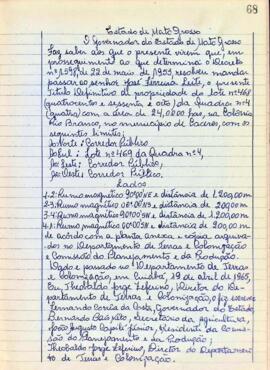 68
Estado de Mato Grosso
O Governador do Estado de Mato Grosso
Faz saber aos que o presente virem que, em
prosseguimento ao que determina o Decreto
nº 1.598, de 22 de maio de 1953, resolveu mandar
passar ao senhor José Pereira Leite, o presente
Titulo Definitivo de propriedade do lote nº 468
(quatrocentos e sessenta e oito) da Quadra nº 4
(quatro) com a área de 24,0000 has, na Colonia
Rio Branco, no municipio de Caceres, com os
seguintes limites;
Ao Norte: Corredor Público
Ao Sul: Lote nº 469 da Quadra nº 4,
Ao Leste: Corredor Público,
Ao Oeste: Corredor Público.
Lados
1-2: Rumo magnético 90º00'NE e distância de 1.200,00m
2-3: Rumo magnético 00º00'NS e distância de 200,00m
3-4: Rumo magnético 90º00'SO e distância de 1.200,00m
4-1: Rumo magnético 00º00' e distância de 200,00m
de acordo com a planta anexa, e cópia arquivada
no Departamento de Terras e Colonização
e Comissão do Planejamento e da Produção.
Dado e passado no Departamento de Terras
e Colonização, em Cuiabá, 19 de abril de 1965,
Eu, Theobaldo Jorge Zeferino, Diretor do De-
partamento de Terras e Colonização, o fiz escrever
Fernando Corrêa da Costa, Governador do Estado,
Bernardo, Secretário da Agricultura,
João Augusto Capilé Júnior, Presidente da Comis-
são do Planejamento e da Produção;
Theobaldo Jorge Zeferino, Diretor do Departamen-
to de Terras e Colonização.